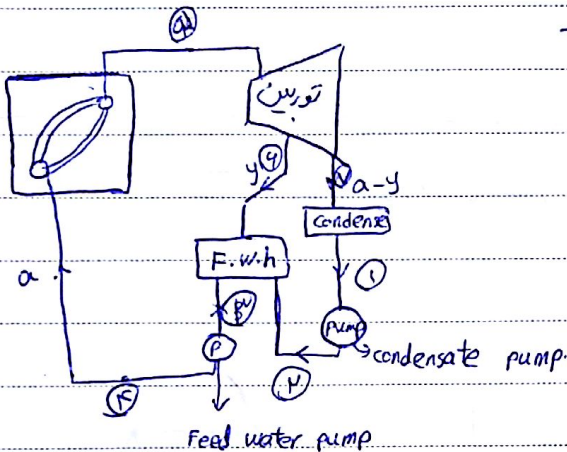 ۵
توربین
y ۶
۷ a-y
Condense
F.w.h
۱
a
۳
P
pump
condensate pump.
۲
۴
Feed water pump